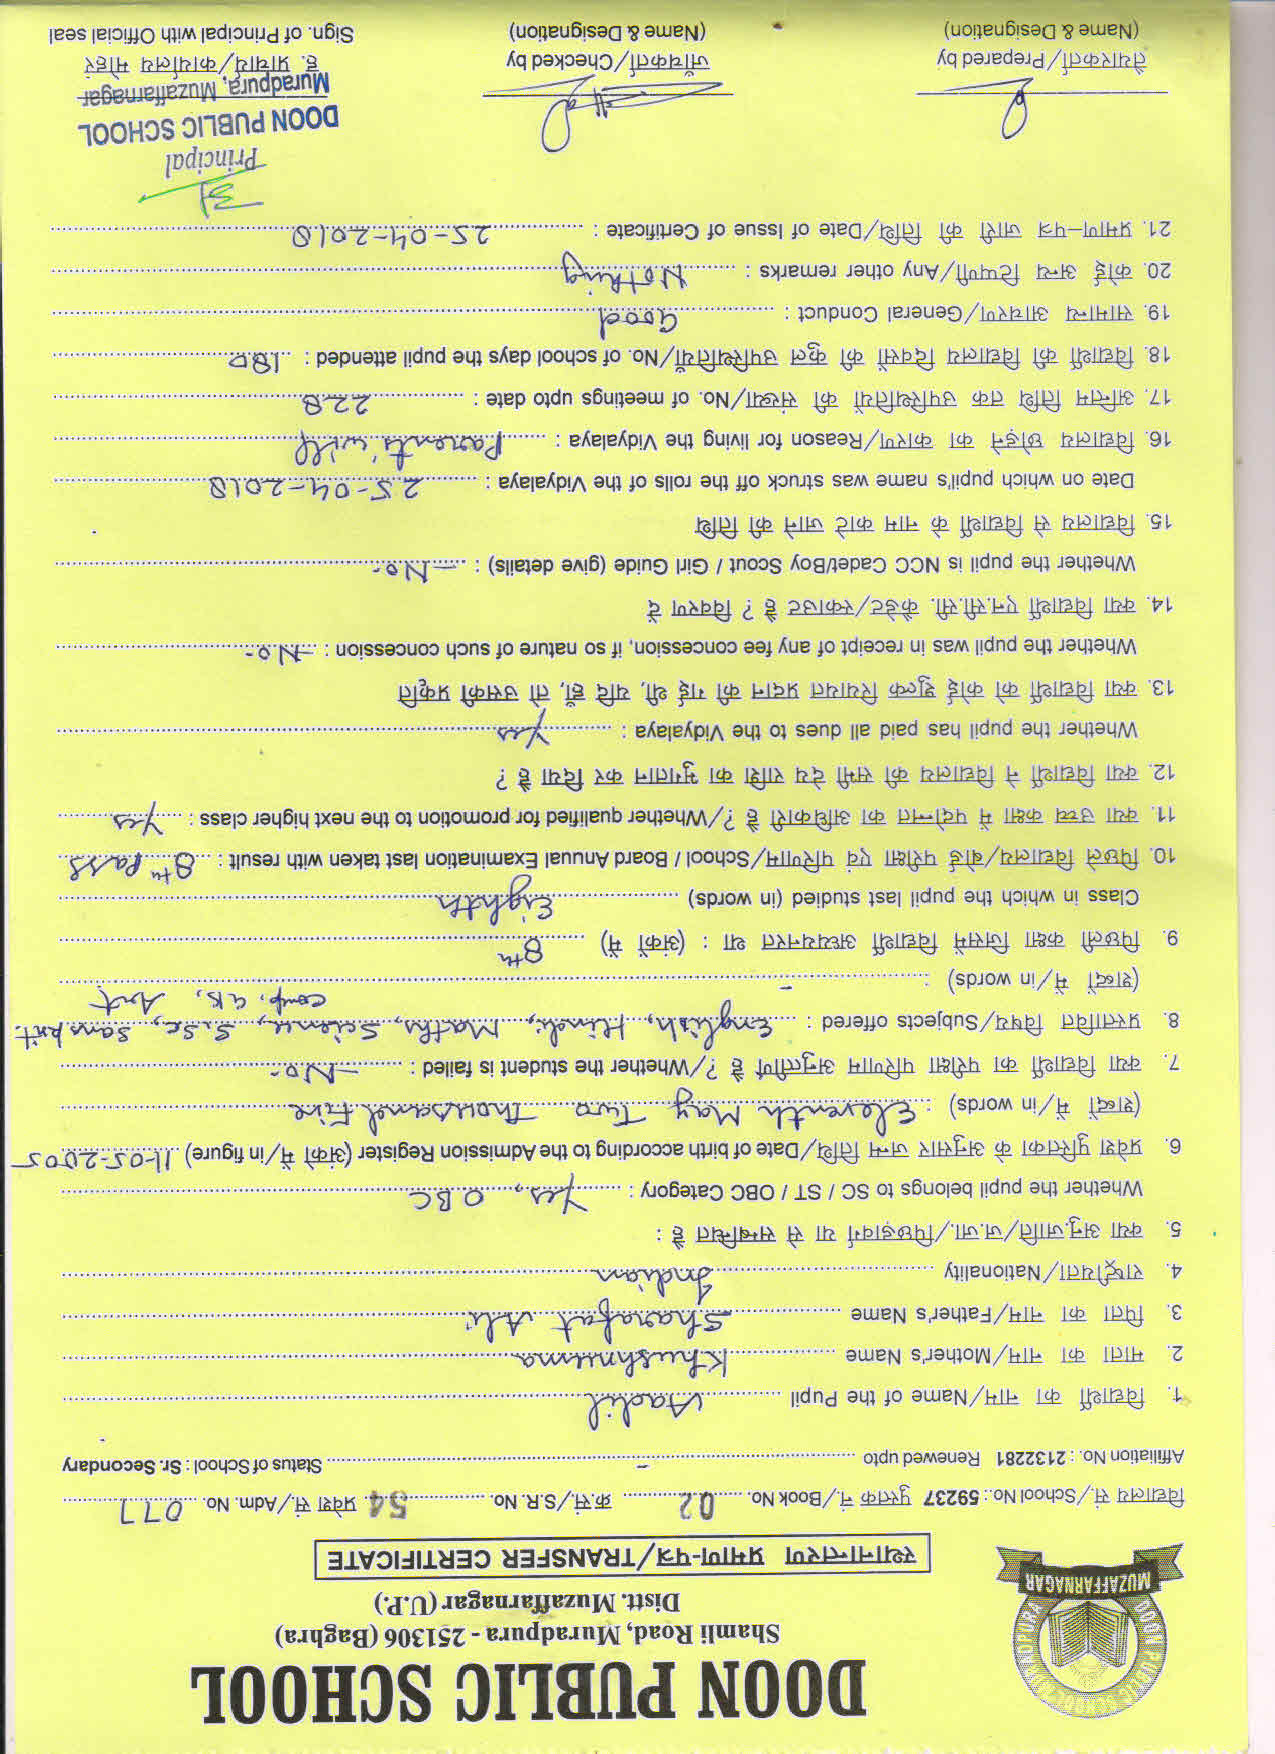 DOON PUBLIC SCHOOL
Shamli Road, Muradpura - 251306 (Baghra)
Distt. Muzaffarnagar (U.P.)
MUZAFFARNAGAR
स्थानान्तरण प्रमाण-पत्र/TRANSFER CERTIFICATE
विद्यालय सं./School No.: 59237 पुस्तक नं./Book No. 02 क्र.सं./S.R. No. 54 प्रवेश सं./Adm. No. 077
Affiliation No. : 2132281 Renewed upto - Status of School : Sr. Secondary
1. विद्यार्थी का नाम/Name of the Pupil Aadil
2. माता का नाम/Mother's Name Khushnuma
3. पिता का नाम/Father's Name Sharafat Ali
4. राष्ट्रीयता/Nationality Indian
5. क्या अनु.जाति/ज.जा./पिछड़ावर्ग या से सम्बन्धित है :
Whether the pupil belongs to SC / ST / OBC Category : Yes, OBC
6. प्रवेश पुस्तिका के अनुसार जन्म तिथि/Date of birth according to the Admission Register (अंको में/in figure) 11-05-2005
(शब्दों में/in words) : Eleventh May Two Thousand Five
7. क्या विद्यार्थी का परीक्षा परिणाम अनुत्तीर्ण है ?/Whether the student is failed : -No-
8. प्रस्तावित विषय/Subjects offered : English, Hindi, Maths, Science, S.Sc, Sanskrit.
Comp, G.K, Art
(शब्दों में/in words) : -
9. पिछली कक्षा जिसमें विद्यार्थी अध्ययनरत था : (अंकों में) 8th
Class in which the pupil last studied (in words) Eighth
10. पिछले विद्यालय/बोर्ड परीक्षा एवं परिणाम/School / Board Anuual Examination last taken with result : 8th Pass
11. क्या उच्च कक्षा में पदोन्नत का अधिकारी है ?/Whether qualified for promotion to the next higher class : Yes
12. क्या विद्यार्थी ने विद्यालय की सभी देय राशि का भुगतान कर दिया है ?
Whether the pupil has paid all dues to the Vidyalaya : Yes
13. क्या विद्यार्थी को कोई शुल्क रियायत प्रदान की गई थी, यदि हाँ, तो उसकी प्रकृति
Whether the pupil was in receipt of any fee concession, if so nature of such concession : -No-
14. क्या विद्यार्थी एन.सी.सी. कैडेट/स्काउट है ? विवरण दें
Whether the pupil is NCC Cadet/Boy Scout / Girl Guide (give details) : -No-
15. विद्यालय से विद्यार्थी के नाम काटे जाने की तिथि
Date on which pupil's name was struck off the rolls of the Vidyalaya : 25-04-2018
16. विद्यालय छोड़ने का कारण/Reason for living the Vidyalaya : Parents' will
17. अन्तिम तिथि तक उपस्थितियों की संख्या/No. of meetings upto date : 228
18. विद्यार्थी की विद्यालय दिवसों की कुल उपस्थितियाँ/No. of school days the pupil attended : 180
19. सामान्य आचरण/General Conduct : Good
20. कोई अन्य टिप्पणी/Any other remarks : Nothing
21. प्रमाण-पत्र जारी की तिथि/Date of Issue of Certificate : 25-04-2018
Principal
DOON PUBLIC SCHOOL
Muradpura, Muzaffarnagar
तैयारकर्ता/Prepared by जाँचकर्ता/Checked by ह. प्राचार्य/कार्यालय मोहर
(Name & Designation) (Name & Designation) Sign. of Principal with Official seal